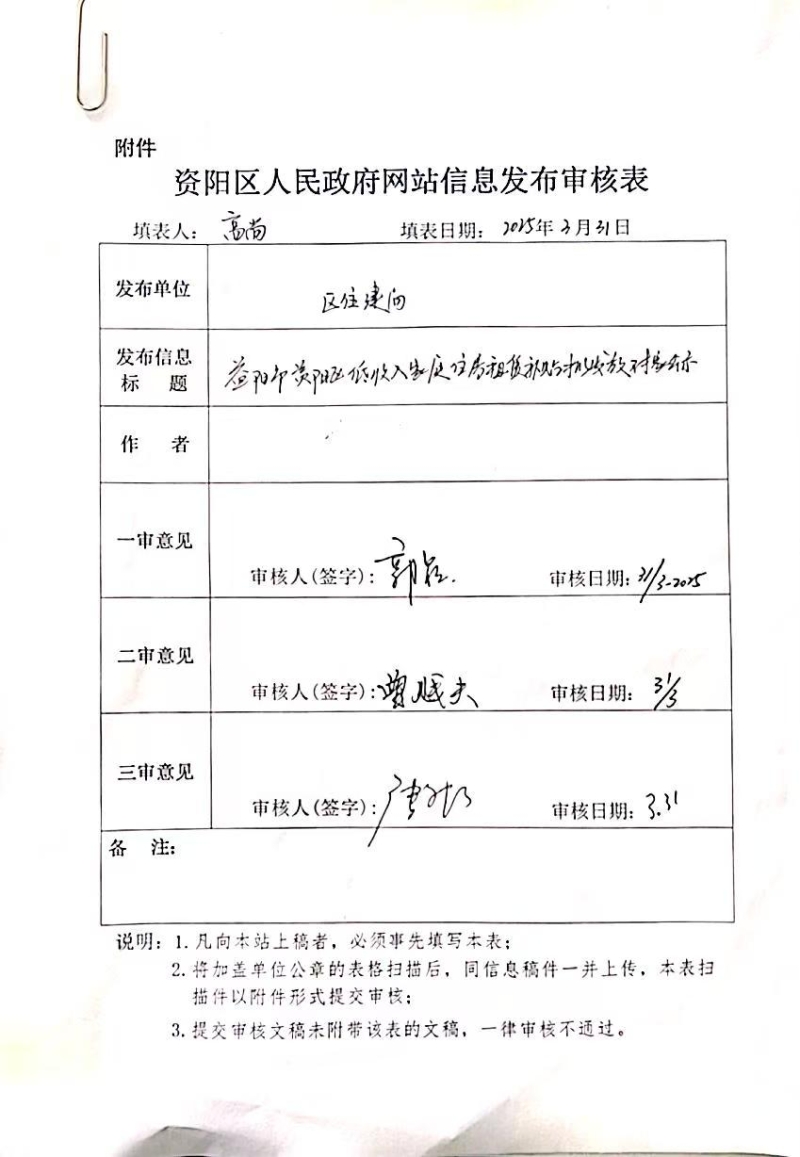 附件
资阳区人民政府网站信息发布审核表
填表人: 高尚 填表日期: 2025年3月31日
发布单位 区住建局
发布信息
标 题 益阳市资阳区低收入家庭住房租赁补贴发放对象公示
作 者
一审意见 审核人(签字): 郭 审核日期: 31/3-2025
二审意见 审核人(签字): 曹 夫 审核日期: 31/3
三审意见 审核人(签字): 审核日期: 3.31
备 注:
说明: 1. 凡向本站上稿者, 必须事先填写本表;
2. 将加盖单位公章的表格扫描后, 同信息稿件一并上传, 本表扫
描件以附件形式提交审核;
3. 提交审核文稿未附带该表的文稿, 一律审核不通过。